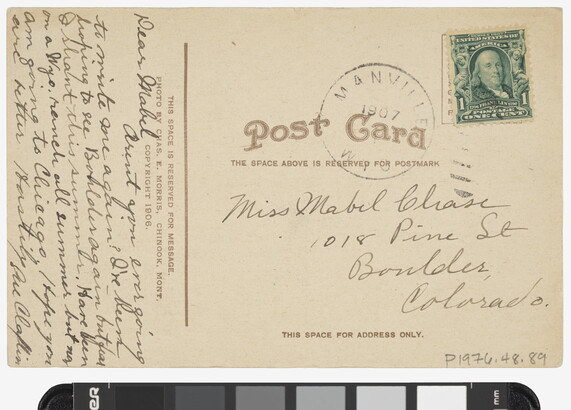 Dear Mabel
Arent you ever going
to write me again? I've been
hoping to see Boulder again but
I shant this summer. Have been
on a Wyo. ranch all summer but now
am going to Chicago. Hope you
are better. Hastily
THIS SPACE IS RESERVED FOR MESSAGE.
PHOTO BY CHAS. E. MORRIS, CHINOOK, MONT.
COPYRIGHT 1906.
MANVILLE
1907
WYO.
Post Card
THE SPACE ABOVE IS RESERVED FOR POSTMARK
UNITED STATES OF
AMERICA
1 FRANKLIN 1
POSTAGE
ONE CENT
Miss Mabel Chase
1018 Pine St
Boulder,
Colorado.
THIS SPACE FOR ADDRESS ONLY.
P1976.48.89
mm